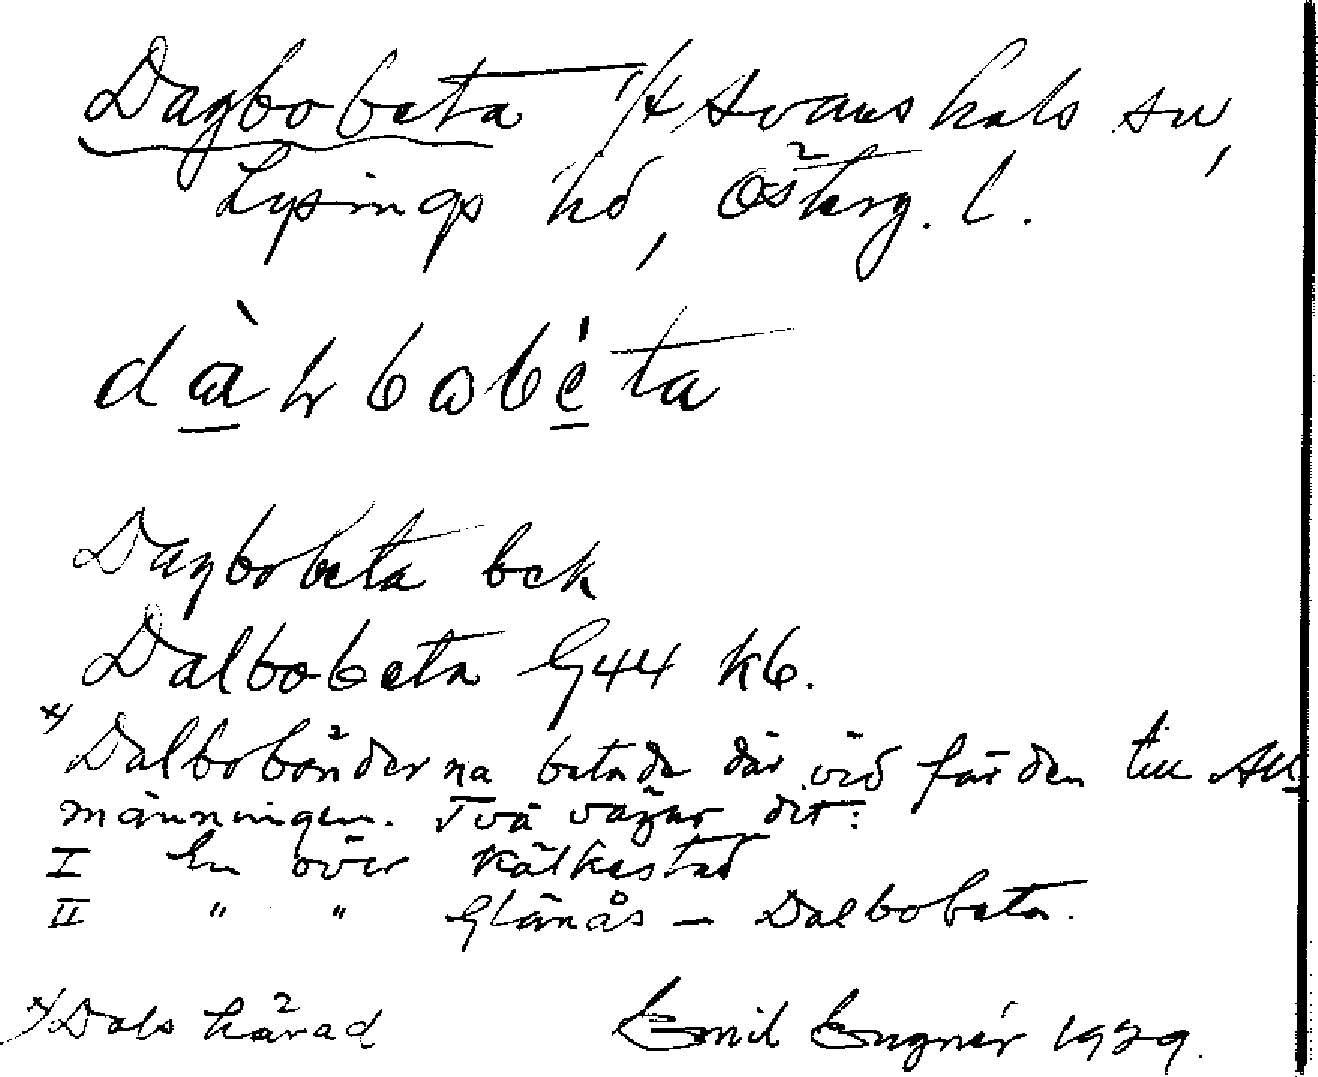 Dagbobeta 1/4 Svanshals sn,
Lysings hd, Österg. l.
dàhbobéta
Dagbobeta bek
Dalbobeta G44 kb.
x) Dalbobönderna betade där vid färden till All-
männingen. Två vägar dit:
I En över Kälkestad
II " " Glänås - Dalbobeta.
x) Dals härad Emil Engnér 1929.